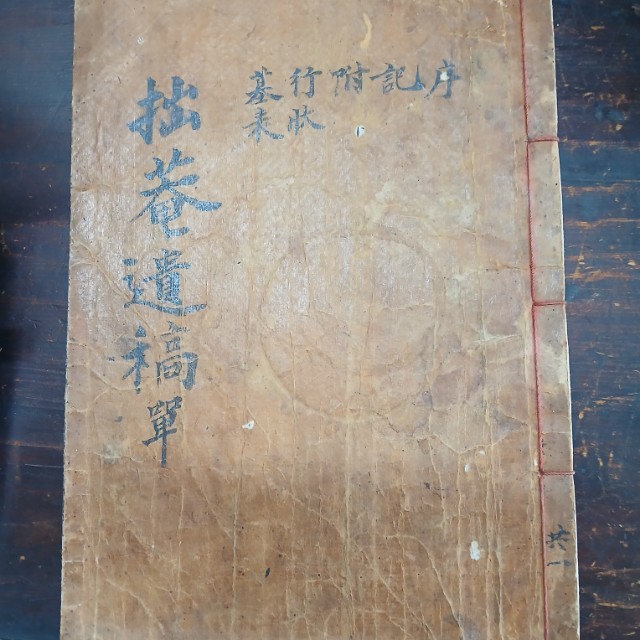 拙菴遺稿單
序
記
附
行狀
墓表
共一